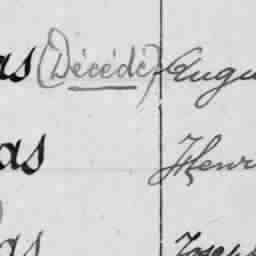 as (Décédé) Augu
as Henr
as Joseph